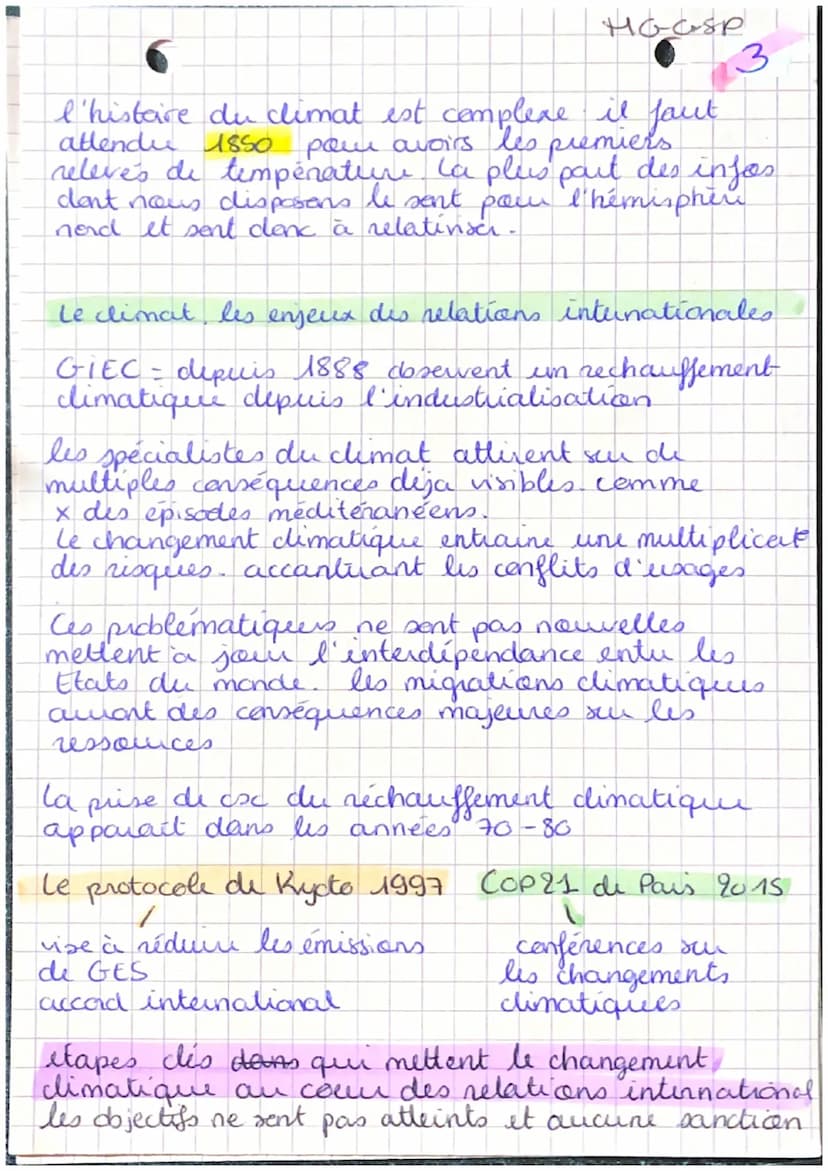 HGGSP
3
l'histoire du climat est complexe il faut
attendre 1850 pour avoirs les premiers
relevés de température. La plus part des infos
dont nous disposons le sont pour l'hémisphère
nord et sont donc à relativiser.
Le climat, les enjeux des relations internationales
GIEC = depuis 1888 observent un rechauffement
climatique depuis l'industrialisation
les spécialistes du climat attirent sur de
multiples conséquences déja visibles. comme
x des épisodes méditéranéens.
Le changement climatique entraine une multiplicat
des risques. accantuant les conflits d'usages
Ces problématiques ne sont pas nouvelles
mettent à jour l'interdépendance entre les
Etats du monde. les migrations climatiques
auront des conséquences majeures sur les
ressources
La prise de csc du réchauffement climatique
apparait dans les années 70-80
Le protocole de Kyoto 1997 COP21 de Paris 2015
vise à réduire les émissions conférences sur
de GES les changements
accord international climatiques
etapes clés dans qui mettent le changement
climatique au coeur des relations international
les objectifs ne sont pas atteints et aucune sanction